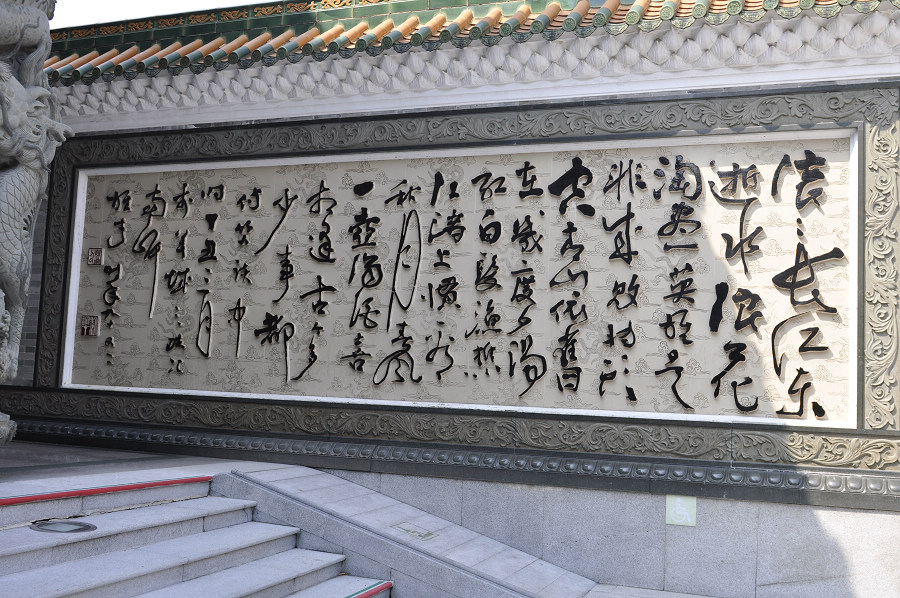 滚滚长江东
逝水浪花
淘尽英雄是
非成败转头
空青山依旧
在几度夕阳
红白发渔樵
江渚上惯看
秋月春风
一壶浊酒喜
相逢古今多
少事都
付笑谈中